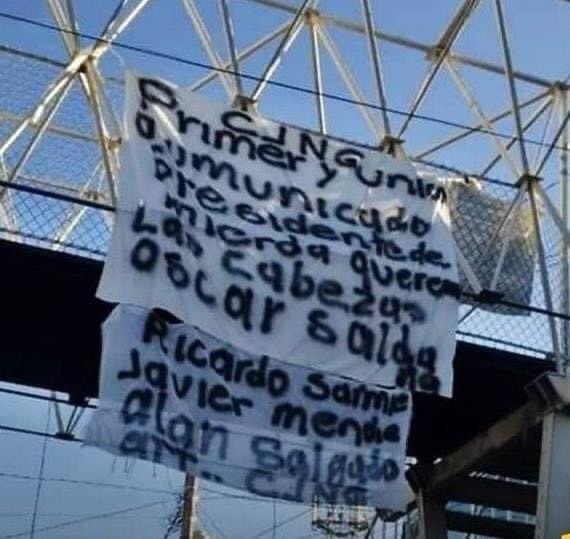 CJNG
Primer y unico
comunicado
presidente de
mierda queremos
Las cabezas
Oscar Saldaña
Ricardo Sarmie
Javier mende
alan Salgado
att CJNG